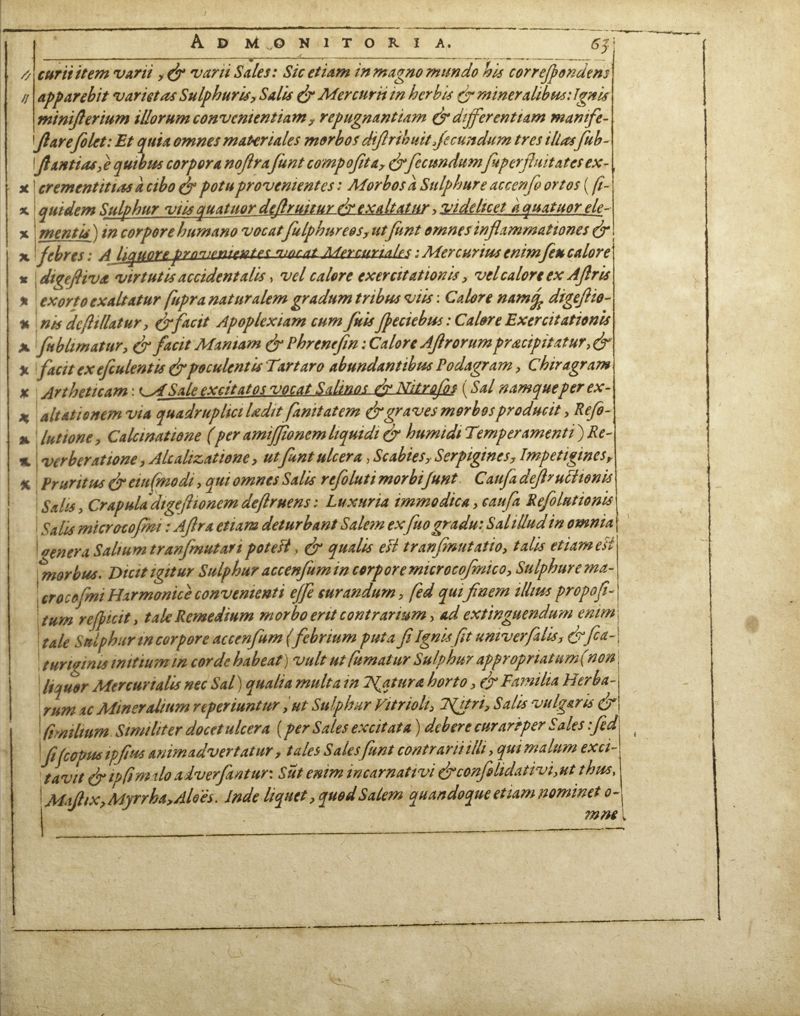 ADMONITORIA. 63
curii item varii, & varii Sales: Sic etiam in magno mundo his correſpondens
apparebit varietas Sulphuris, Salis & Mercurii in herbis & mineralibus: Ignis
miniſterium illorum convenientiam, repugnantiam & differentiam manife-
ſtare ſolet: Et quia omnes materiales morbos diſtribuit, ſecundum tres illas ſub-
ſtantias, è quibus corpora noſtra ſunt compoſita, & ſecundum ſuperfluitates ex-
crementitias à cibo & potu provenientes: Morbos à Sulphure accenſo ortos (ſi-
quidem Sulphur viis quatuor deſtruitur & exaltatur, videlicet à quatuor ele-
mentis) in corpore humano vocat ſulphureos, ut ſunt omnes inflammationes &
febres: A liquore provenientes vocat Mercuriales: Mercurius enim ſeu calore
digeſtivæ virtutis accidentalis, vel calore exercitationis, vel calore ex Aſtris
exorto exaltatur ſupra naturalem gradum tribus viis: Calore namq; digeſtio-
nis deſtillatur, & facit Apoplexiam cum ſuis ſpeciebus: Calore Exercitationis
ſublimatur, & facit Maniam & Phreneſin: Calore Aſtrorum præcipitatur, &
facit ex eſculentis & poculentis Tartaro abundantibus Podagram, Chiragram
Artheticam: A Sale excitatos vocat Salinos & Nitroſos (Sal namque per ex-
altationem via quadruplici lædit ſanitatem & graves morbos producit, Reſo-
lutione, Calcinatione (per amiſſionem liquidi & humidi Temperamenti) Re-
verberatione, Alcalizatione, ut ſunt ulcera, Scabies, Serpigines, Impetigines,
Pruritus & eiuſmodi, qui omnes Salis reſoluti morbi ſunt. Cauſa deſtructionis
Salis, Crapula digeſtionem deſtruens: Luxuria immodica, cauſa Reſolutionis
Salis microcoſmi: Aſtra etiam deturbant Salem ex ſuo gradu: Sal illud in omnia
genera Salium tranſmutari poteſt, & qualis eſt tranſmutatio, talis etiam eſt
morbus. Dicit igitur Sulphur accenſum in corpore microcoſmico, Sulphure ma-
crocoſmi Harmonicè convenienti eſſe curandum, ſed qui finem illius propoſi-
tum reſpicit, tale Remedium morbo erit contrarium, ad extinguendum enim
tale Sulphur in corpore accenſum (febrium puta ſi Ignis ſit univerſalis, & ſca-
turiginis initium in corde habeat) vult ut ſumatur Sulphur appropriatum (non
liquor Mercurialis nec Sal) qualia multa in Natura horto, & Familia Herba-
rum ac Mineralium reperiuntur, ut Sulphur Vitrioli, Nitri, Salis vulgaris &
ſimilium. Similiter docet ulcera (per Sales excitata) debere curari per Sales: ſed
ſi ſcopus ipſius animadvertatur, tales Sales ſunt contrarii illi, qui malum exci-
tavit & ipſi malo adverſantur: Sût enim incarnativi & conſolidativi, ut thus,
Maſtix, Myrrha, Aloës. Inde liquet, quod Salem quandoque etiam nominet o-
mne